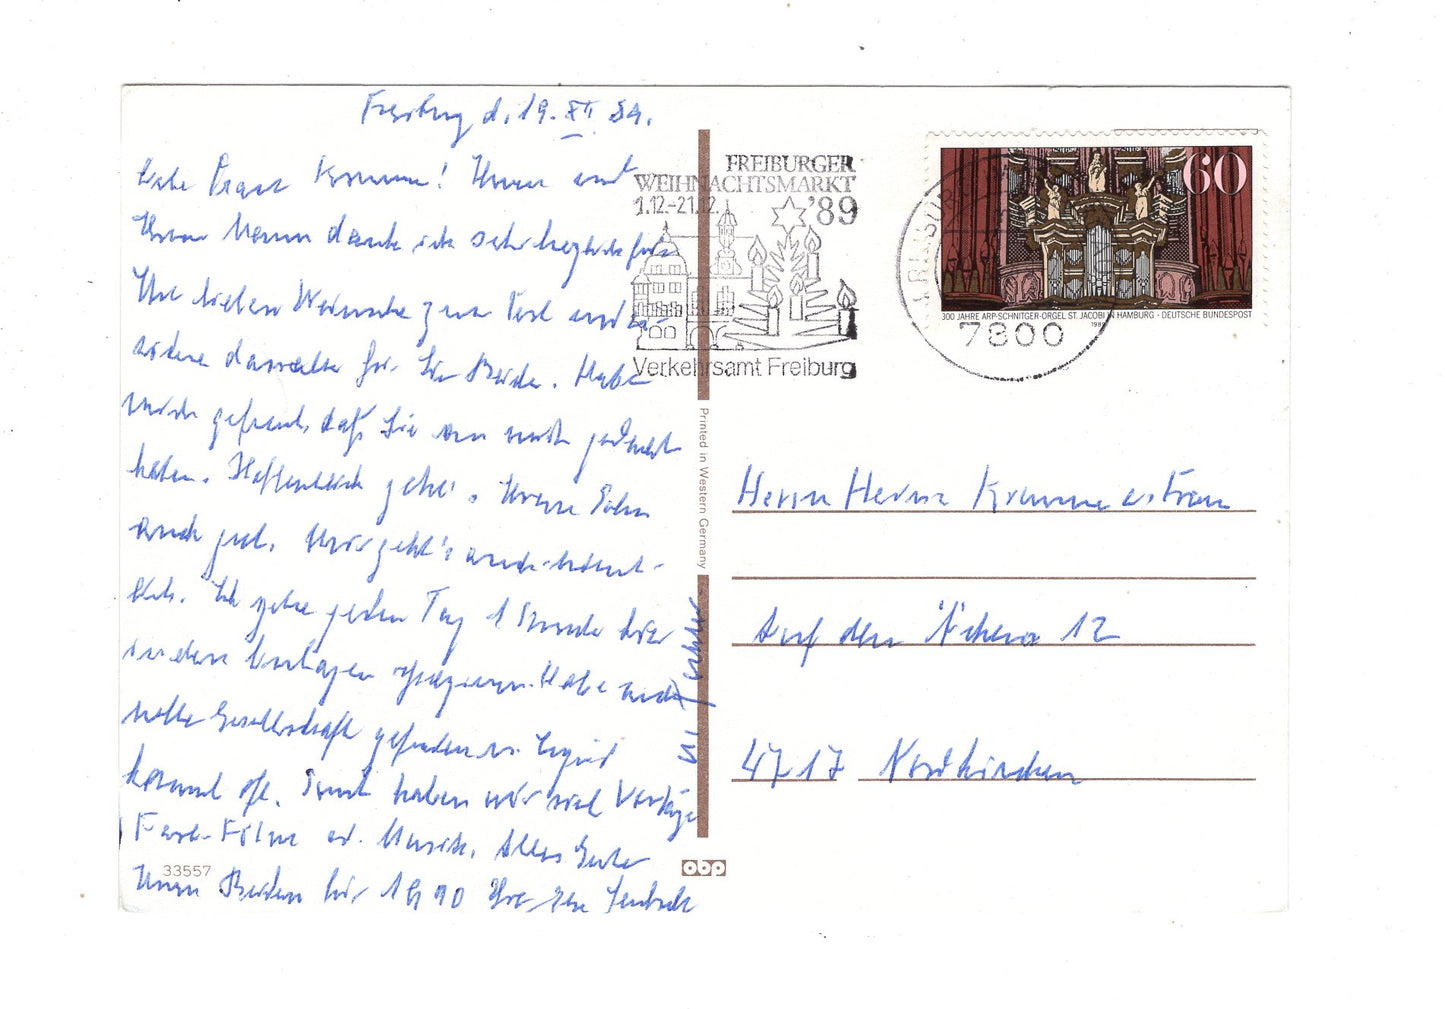 Freiburg d. 19. XII 89.
Liebe Frau Krumme! Ihnen und
Ihrem Mann danke ich sehr herzlich für
Ihre lieben Wünsche zum Fest und er-
widere dasselbe für Sie Beide. Habe
mich gefreut, daß Sie an mich gedacht
haben. Hoffentlich geht's Ihrem Sohn
auch gut. Mir geht's auch ordent-
lich. Ich gehe jeden Tag 1 Stunde hier
in den Anlagen spazieren. Habe auch
nette Gesellschaft gefunden u.
kommt oft. Sonst haben wir viel Vorträge
Farb-Filme od. Musik. Alles Gute
Ihnen Beiden für 1990 Ihre
FREIBURGER
WEIHNACHTSMARKT
1.12.-21.12. '89
Verkehrsamt Freiburg
FREIBURG
7800
60
300 JAHRE ARP-SCHNITGER-ORGEL ST. JACOBI IN HAMBURG · DEUTSCHE BUNDESPOST
1989
Printed in Western Germany
Herrn Krumme u. Frau
Auf den Äckern 12
4717 Nordkirchen
33557
obp